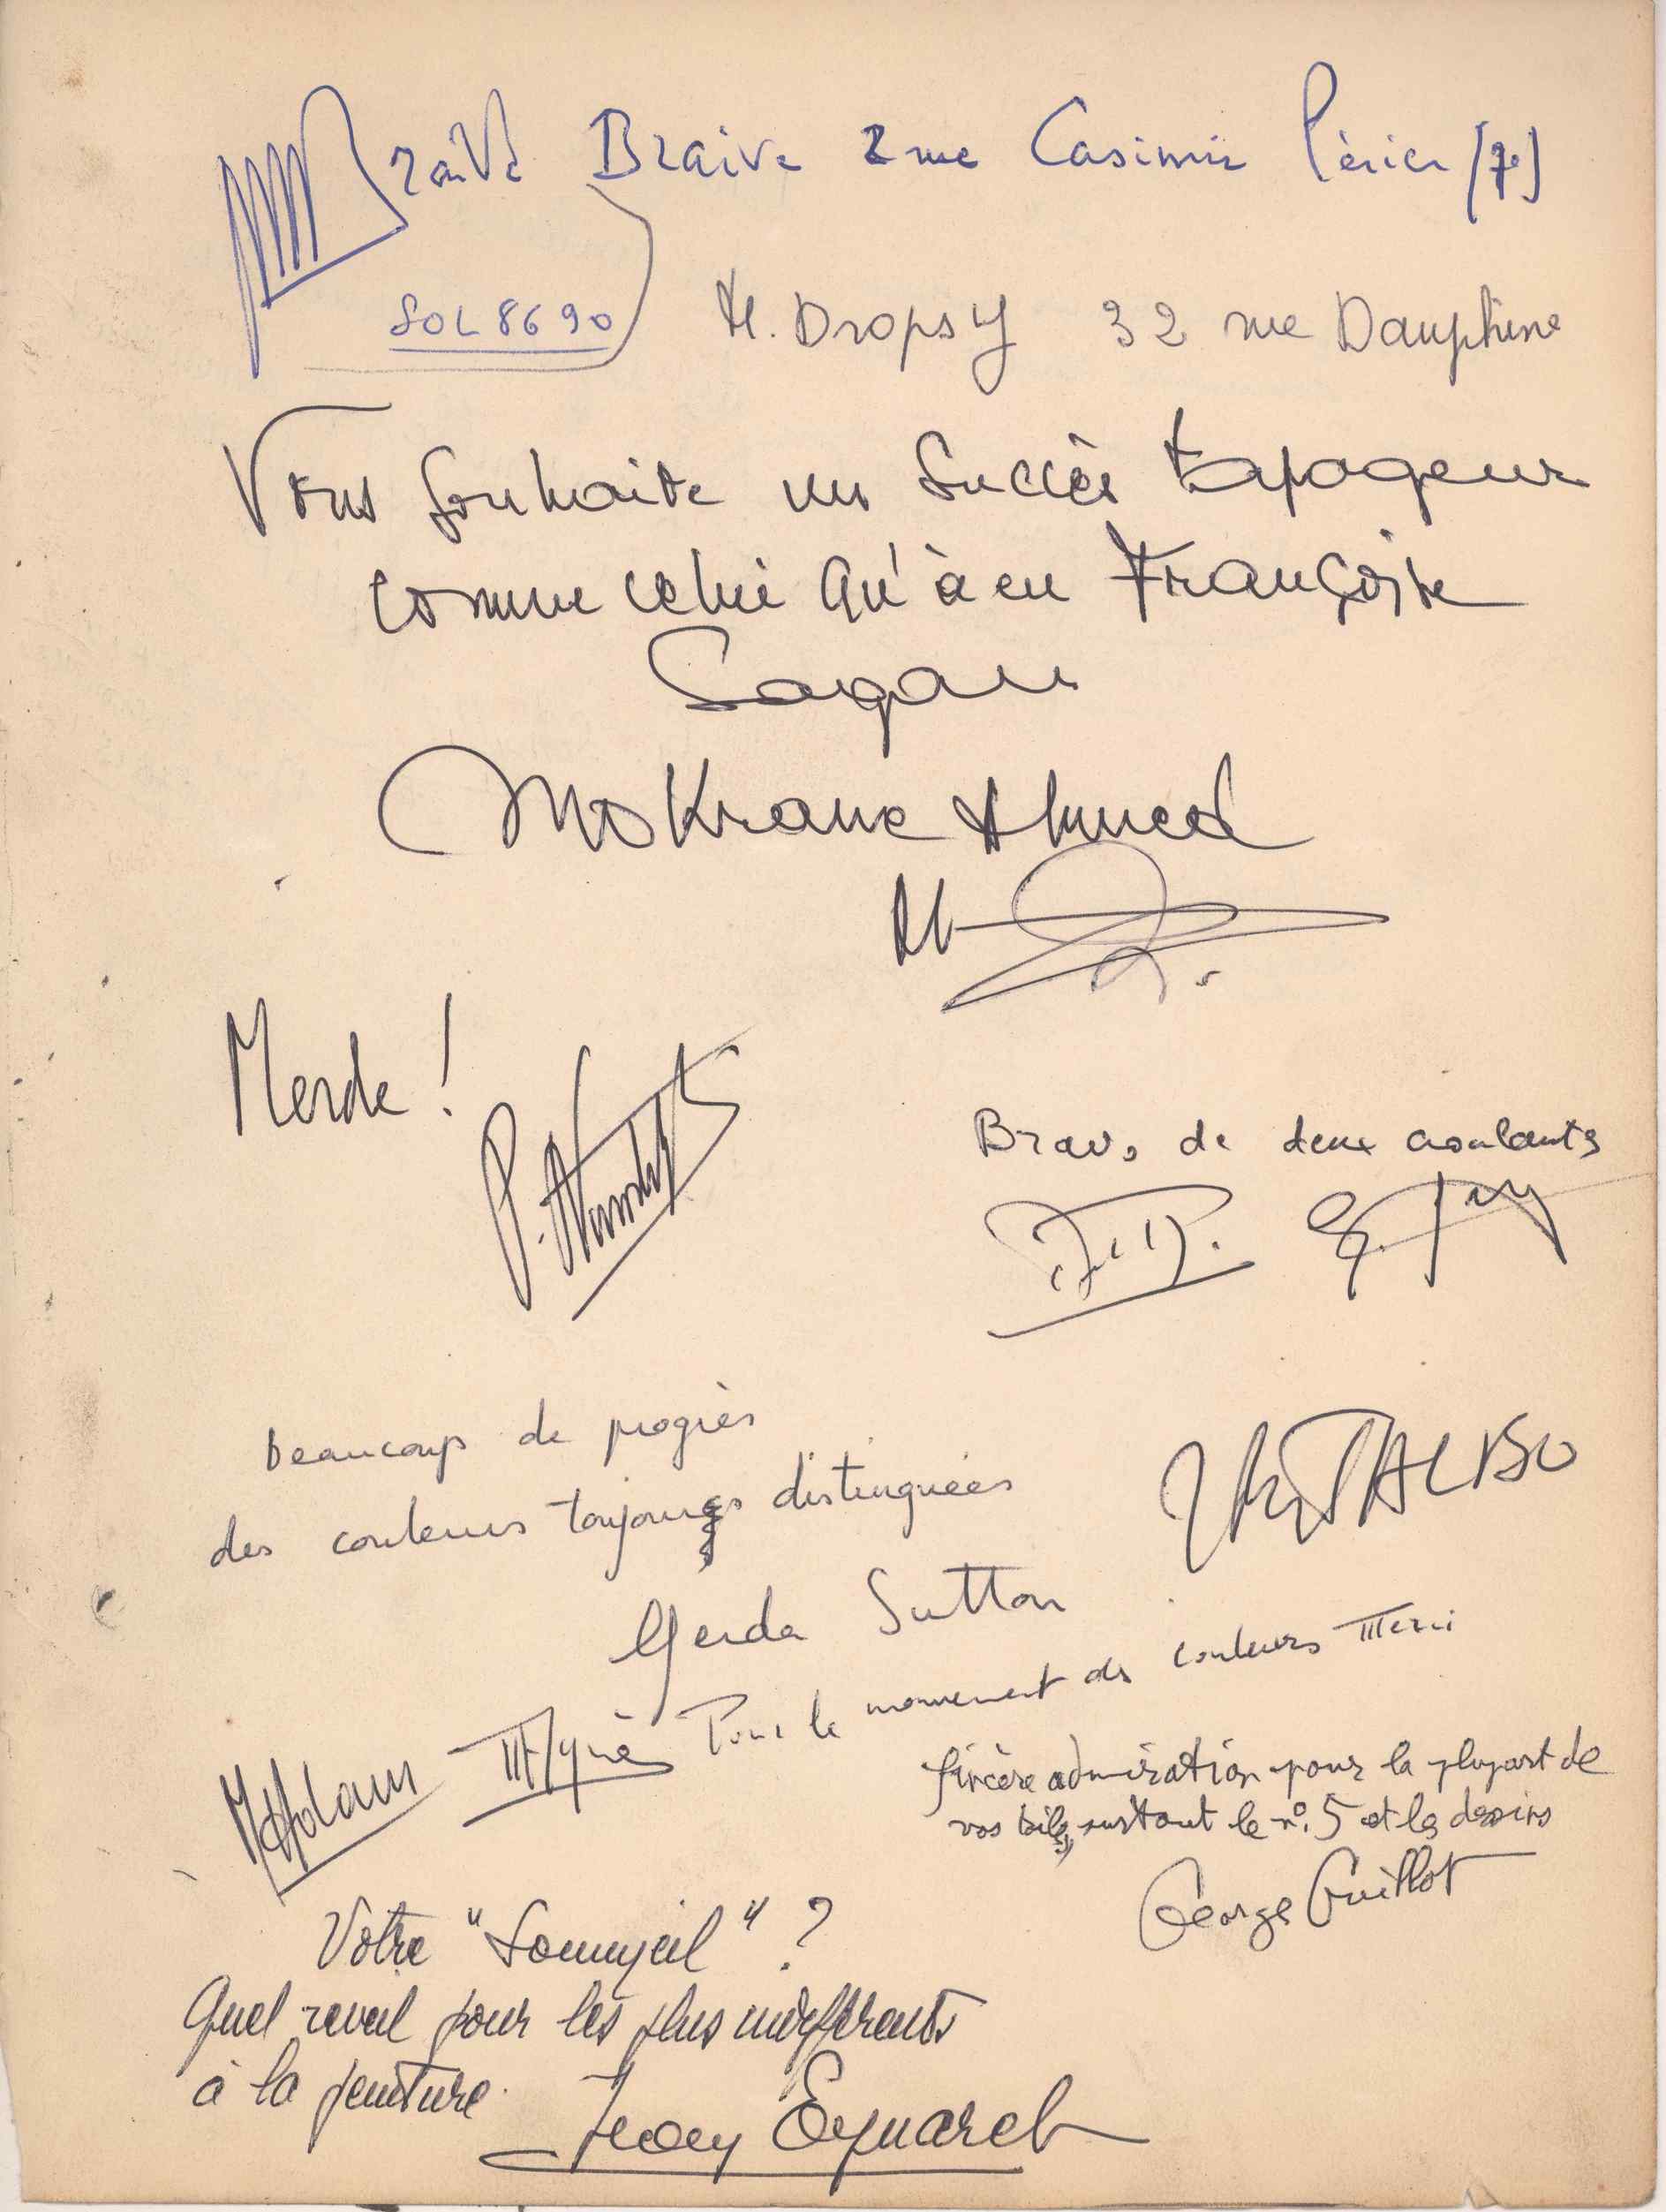 Braive Braive 2 rue Casimir Périer (7e)
SOL 8690
H. Dropsy 32 rue Dauphine
Vous souhaite un succès tapageur
comme celui qu'à eu Françoise
Sagan
Mokrane Ahmed
Merde !
Bravo de deux croulants
beaucoup de progrès
des couleurs toujours distinguées
Gerda Sutton
Pour le mouvement des couleurs Merci
Sincère admiration pour la plupart de
vos toiles, surtout le n° 5 et les dessins
George Guillot
Votre "Sommeil" ?
Quel reveil pour les plus indifférents
à la peinture.